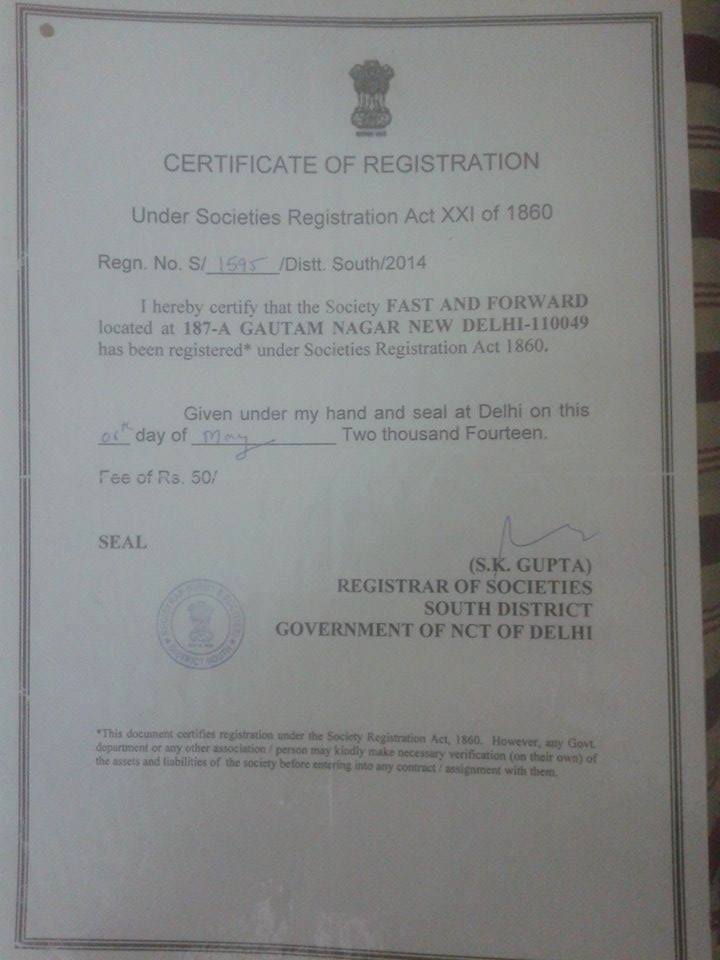 CERTIFICATE OF REGISTRATION
Under Societies Registration Act XXI of 1860
Regn. No. S/ 1595 /Distt. South/2014
I hereby certify that the Society FAST AND FORWARD
located at 187-A GAUTAM NAGAR NEW DELHI-110049
has been registered* under Societies Registration Act 1860.
Given under my hand and seal at Delhi on this
06th day of May Two thousand Fourteen.
Fee of Rs. 50/
SEAL
(S.K. GUPTA)
REGISTRAR OF SOCIETIES
SOUTH DISTRICT
GOVERNMENT OF NCT OF DELHI
DISTRICT SOUTH
*This document certifies registration under the Society Registration Act, 1860. However, any Govt.
department or any other association / person may kindly make necessary verification (on their own) of
the assets and liabilities of the society before entering into any contract / assignment with them.